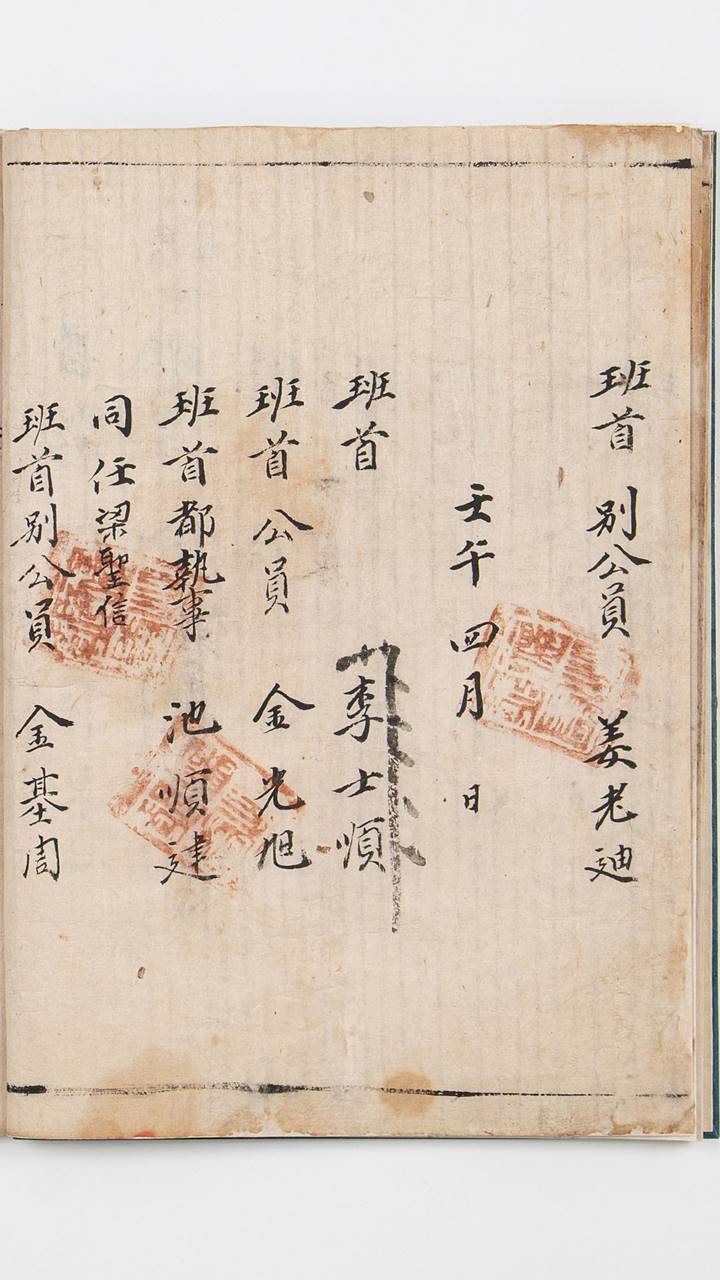 班首 別公員 姜老迪
壬午 四月 日
班首 李士順
班首 公員 金光旭
班首都執事 池順建
同任梁聖信
班首別公員 金基周